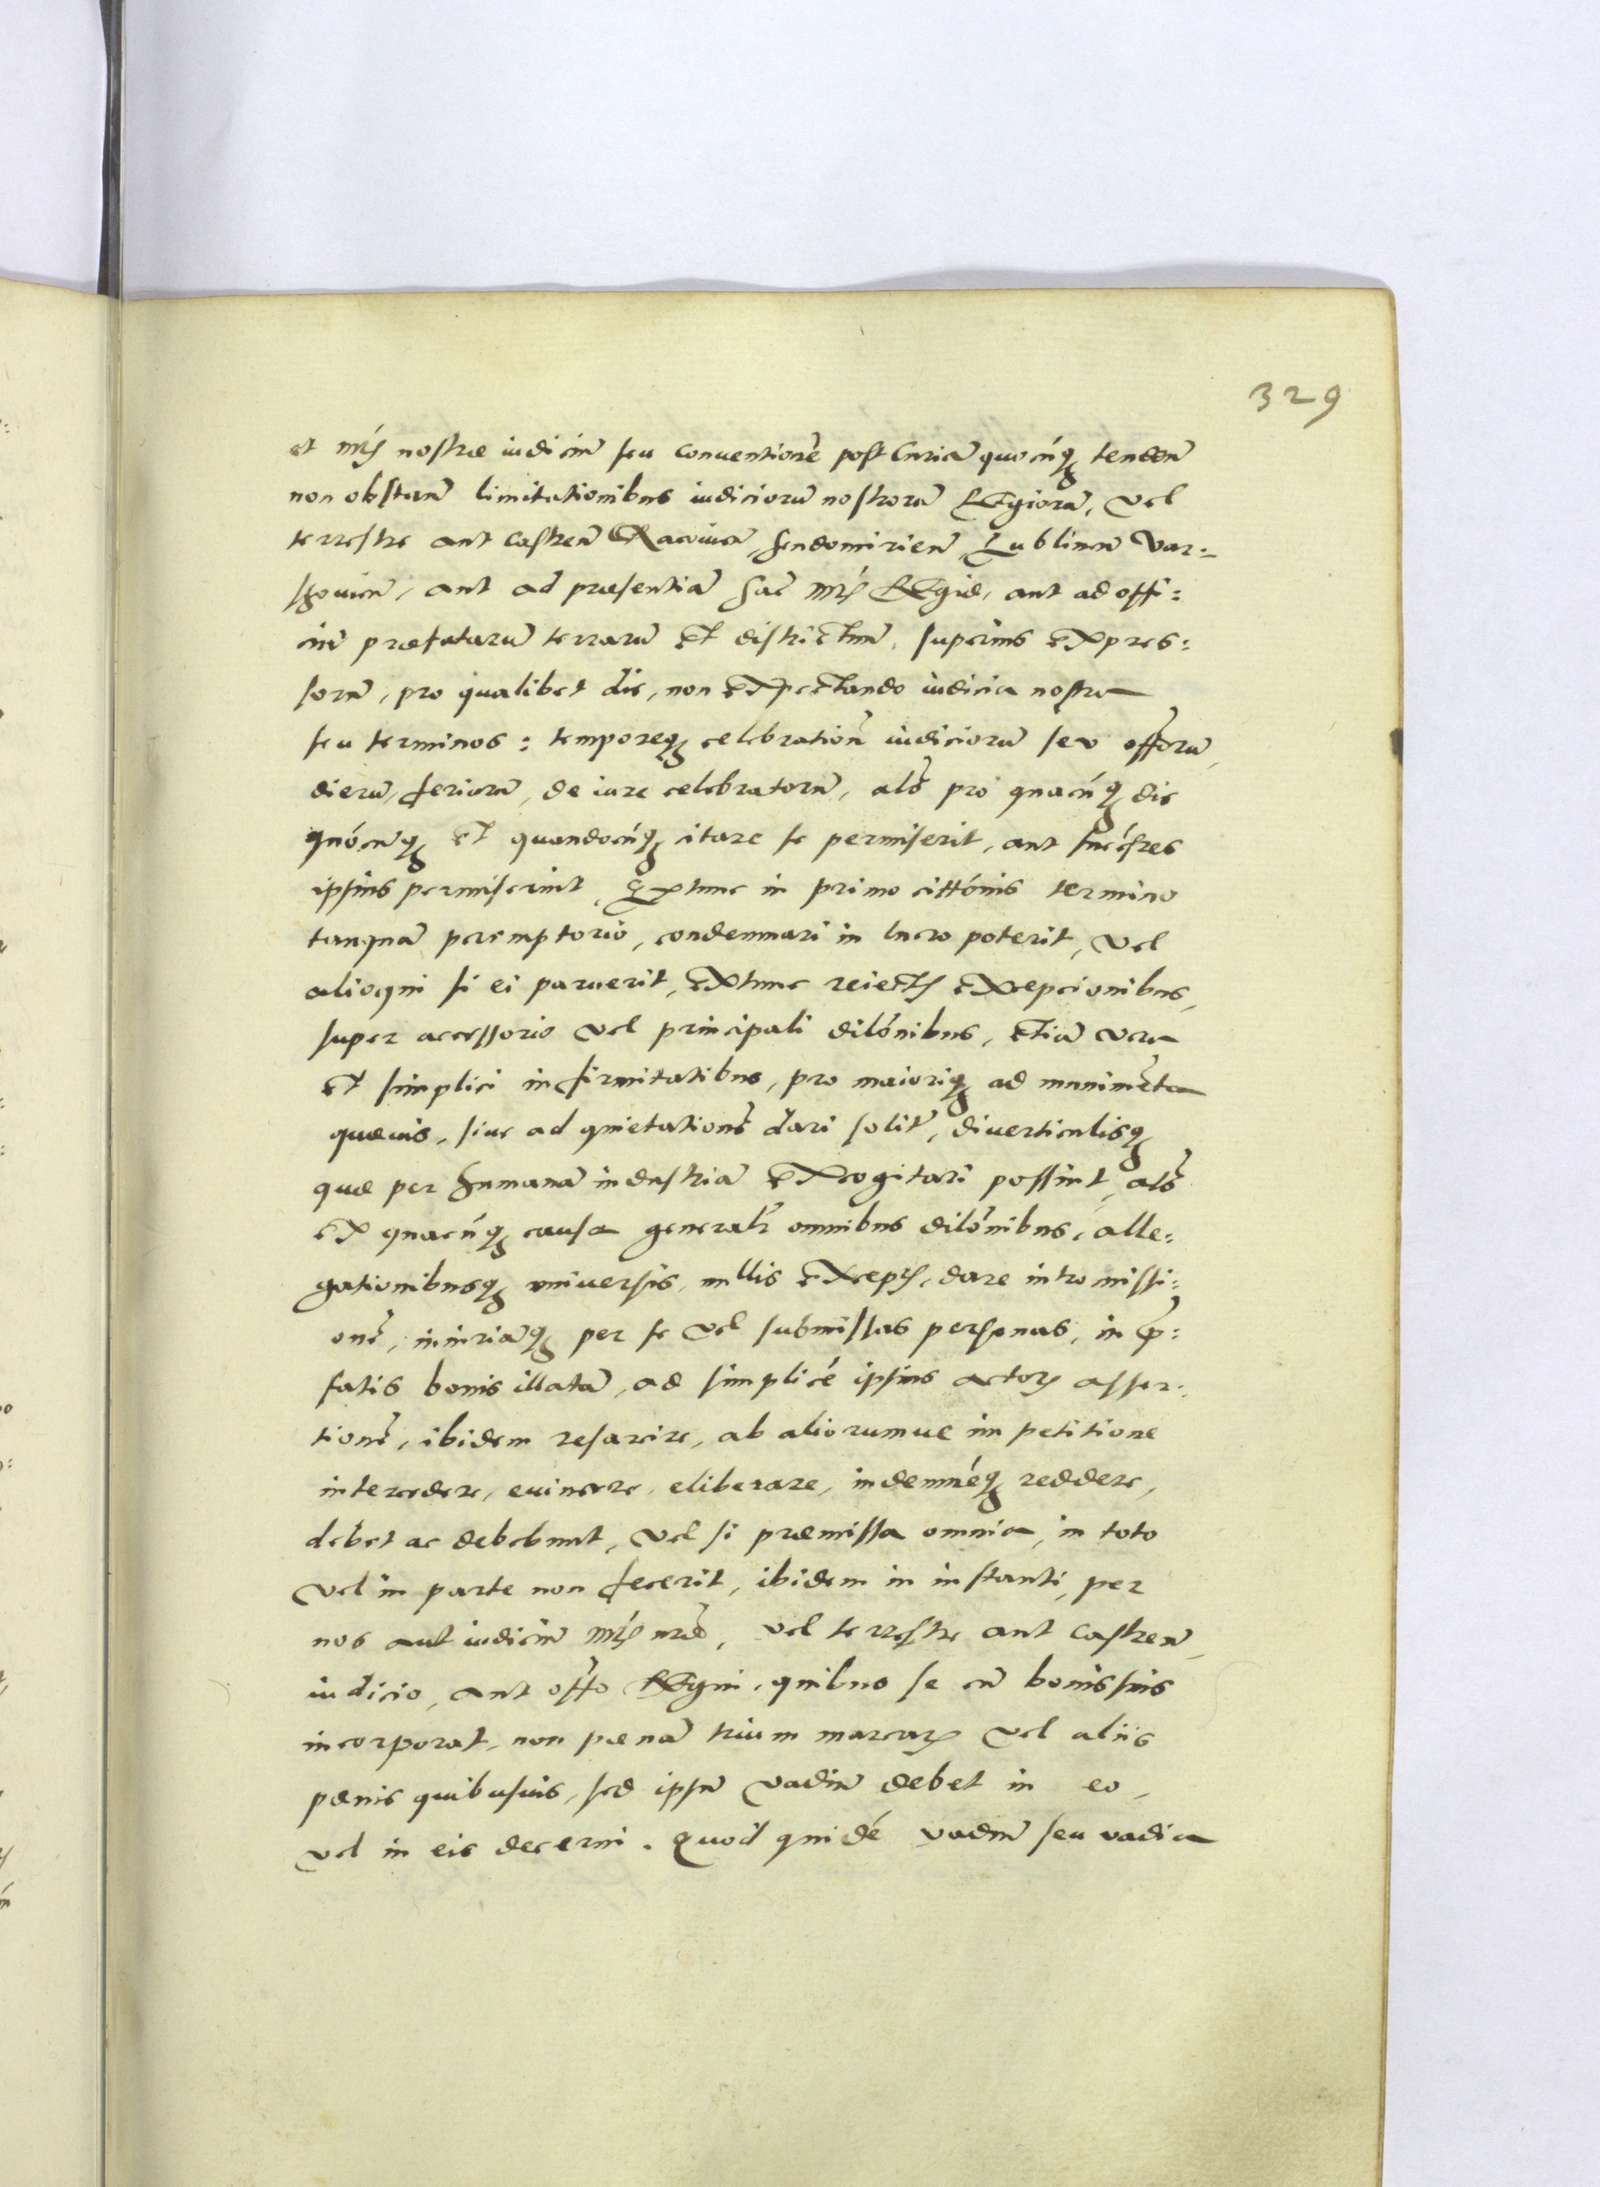 329
et Mtis nostræ iudiciũ seu conuentionẽ post Curiã quocũq3 tendẽn
non obstanã limitationibus iudiciorũ nostrorũ Regiorũ, vel
terrestre aut castren̄ Racouien̄, Sendomirien̄, Lublinen̄ Var:
shouien̄, aut ad præsentiã Sac̄ Mtis Regiæ, aut ad offi:
ciũ præfatarũ terrarũ et districtuũ, superius expres:
sorũ, pro qualibet die, non expectando iudicia nostra
seu terminos: temporeq3 celebrationũ iudiciorũ seu offorũ,
dierũ, feriarũ, de iure celebratorũ, als̃ pro quacũq3 die
quócũq3 et quandocũq3 citare se permiserit, aut succ̃sres
ipsius permiserint, Extunc in primo cittónis termino
tanquã peremptorio, condemnari in lucro poterit, vel
alioqui si ei paruerit, extunc reiectis exceptionibus,
super accessorio vel principali dilõnibus, etiã vera
et simplici infirmitatibus, pro maioriq3 ad munimẽta
quæuis, siue ad quietationẽ dari solit̃, diuerticulisq3
quæ per humanã industriã excogitari possint, als̃
ex quacũq3 causa generalr̃ omnibus dilõnibus, alle:
gationibusq3 vniuersis, nullis exceptis, dare intromissi:
onẽ, iniuriãq3 per se vel submissas personas, in p̃:
fatis bonis illatã, ad simplicẽ ipsius actoris asser:
tionẽ, ibidem resarcire, ab aliorumue impetitione
intercedere, euincere, eliberare, indemnẽq3 reddere,
debet ac debebunt, vel si præmissa omnia, in toto
vel in parte non fecerit, ibidem in instanti, per
nos aut iudiciũ Mtis nr̃æ, vel terrestre aut castren̄,
iudicio, aut offo Regni, quibus se cũ bonis suis
incorporat, non pænã trium marcarũ vel aliis
pænis quibusuis, sed ipsũ vadiũ debet in eo,
vel in eis decerni. Quod quidẽ vadiũ seu vadia